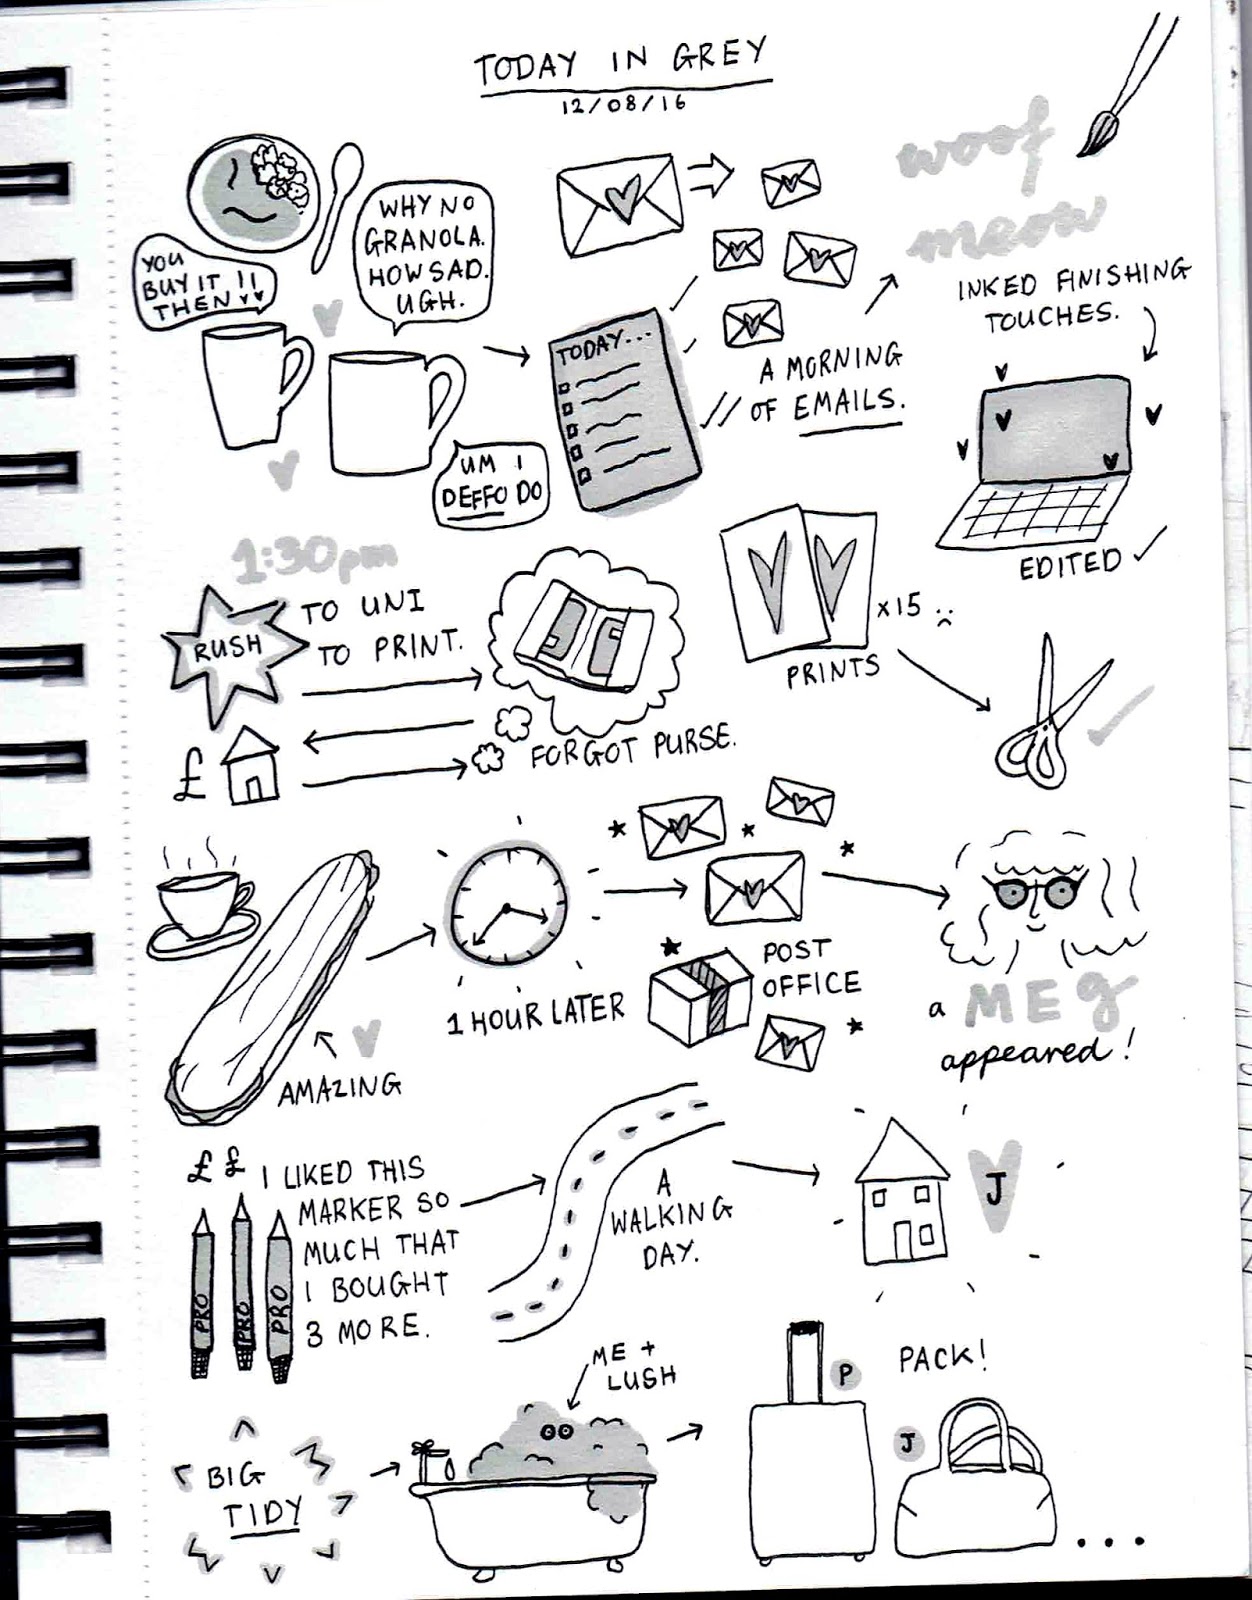 TODAY IN GREY
12/08/16
YOU
BUY IT !!
THEN
WHY NO
GRANOLA.
HOW SAD.
UGH.
UM I
DEFFO DO
TODAY...
A MORNING
OF EMAILS.
woof
meow
INKED FINISHING
TOUCHES.
EDITED
1:30pm
RUSH
TO UNI
TO PRINT.
£
FORGOT PURSE.
x15 :(
PRINTS
AMAZING
1 HOUR LATER
POST
OFFICE
a MEg
appeared!
£ £
I LIKED THIS
MARKER SO
MUCH THAT
I BOUGHT
3 MORE.
PRO
PRO
PRO
A
WALKING
DAY.
J
BIG
TIDY
ME +
LUSH
P
PACK!
J
...